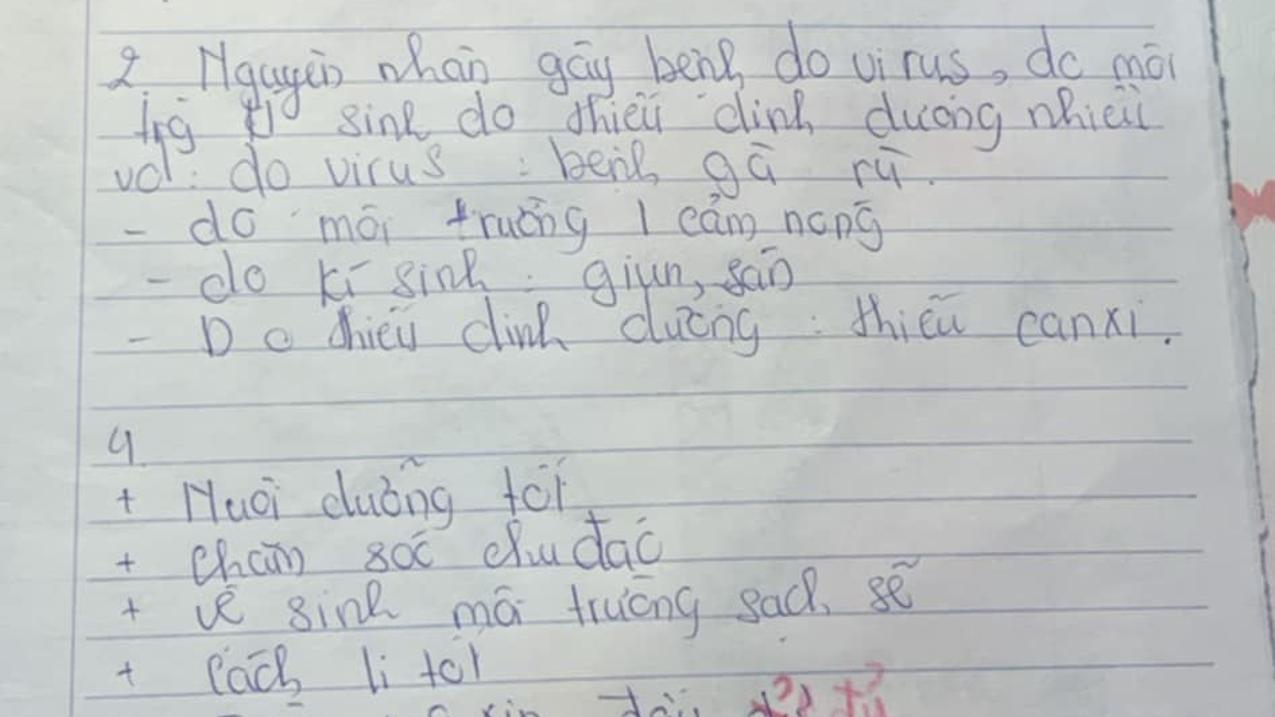 2. Nguyên nhân gây bệnh do virus, do môi
trg kí sinh do thiếu dinh dưỡng nhiều
vd: do virus : bệnh gà rù.
- do môi trường / cảm nóng
- do kí sinh : giun, sán
- Do thiếu dinh dưỡng : thiếu canxi.
4
+ Nuôi dưỡng tốt
+ chăm sóc chu đáo
+ vệ sinh môi trường sạch sẽ
+ Cách li tốt
xin đầy đủ